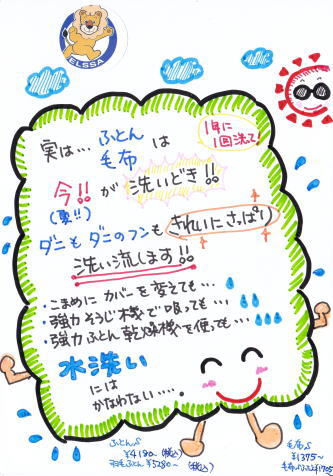 ELSSA
1年に
1回洗って!
実は…ふとん
毛布 は
今!! が 洗いどき!!
(夏!!)
ダニも ダニのフンも きれいにさっぱり
洗い流します!!
・こまめに カバーを変えても…
・強力そうじ機で吸っても…
・強力ふとん乾燥機を使っても…
水洗い
には
かなわない……
ふとん
¥4190~(税込)
羽毛ふとん ¥5280~(税込)
毛布
¥1375~